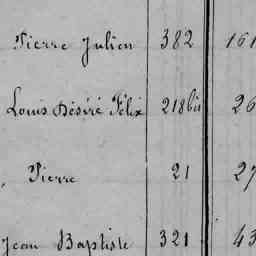 Pierre Julien 382 161
Louis Désiré Félix 218 bis 26
Pierre 21 27
Jean Baptiste 321 43